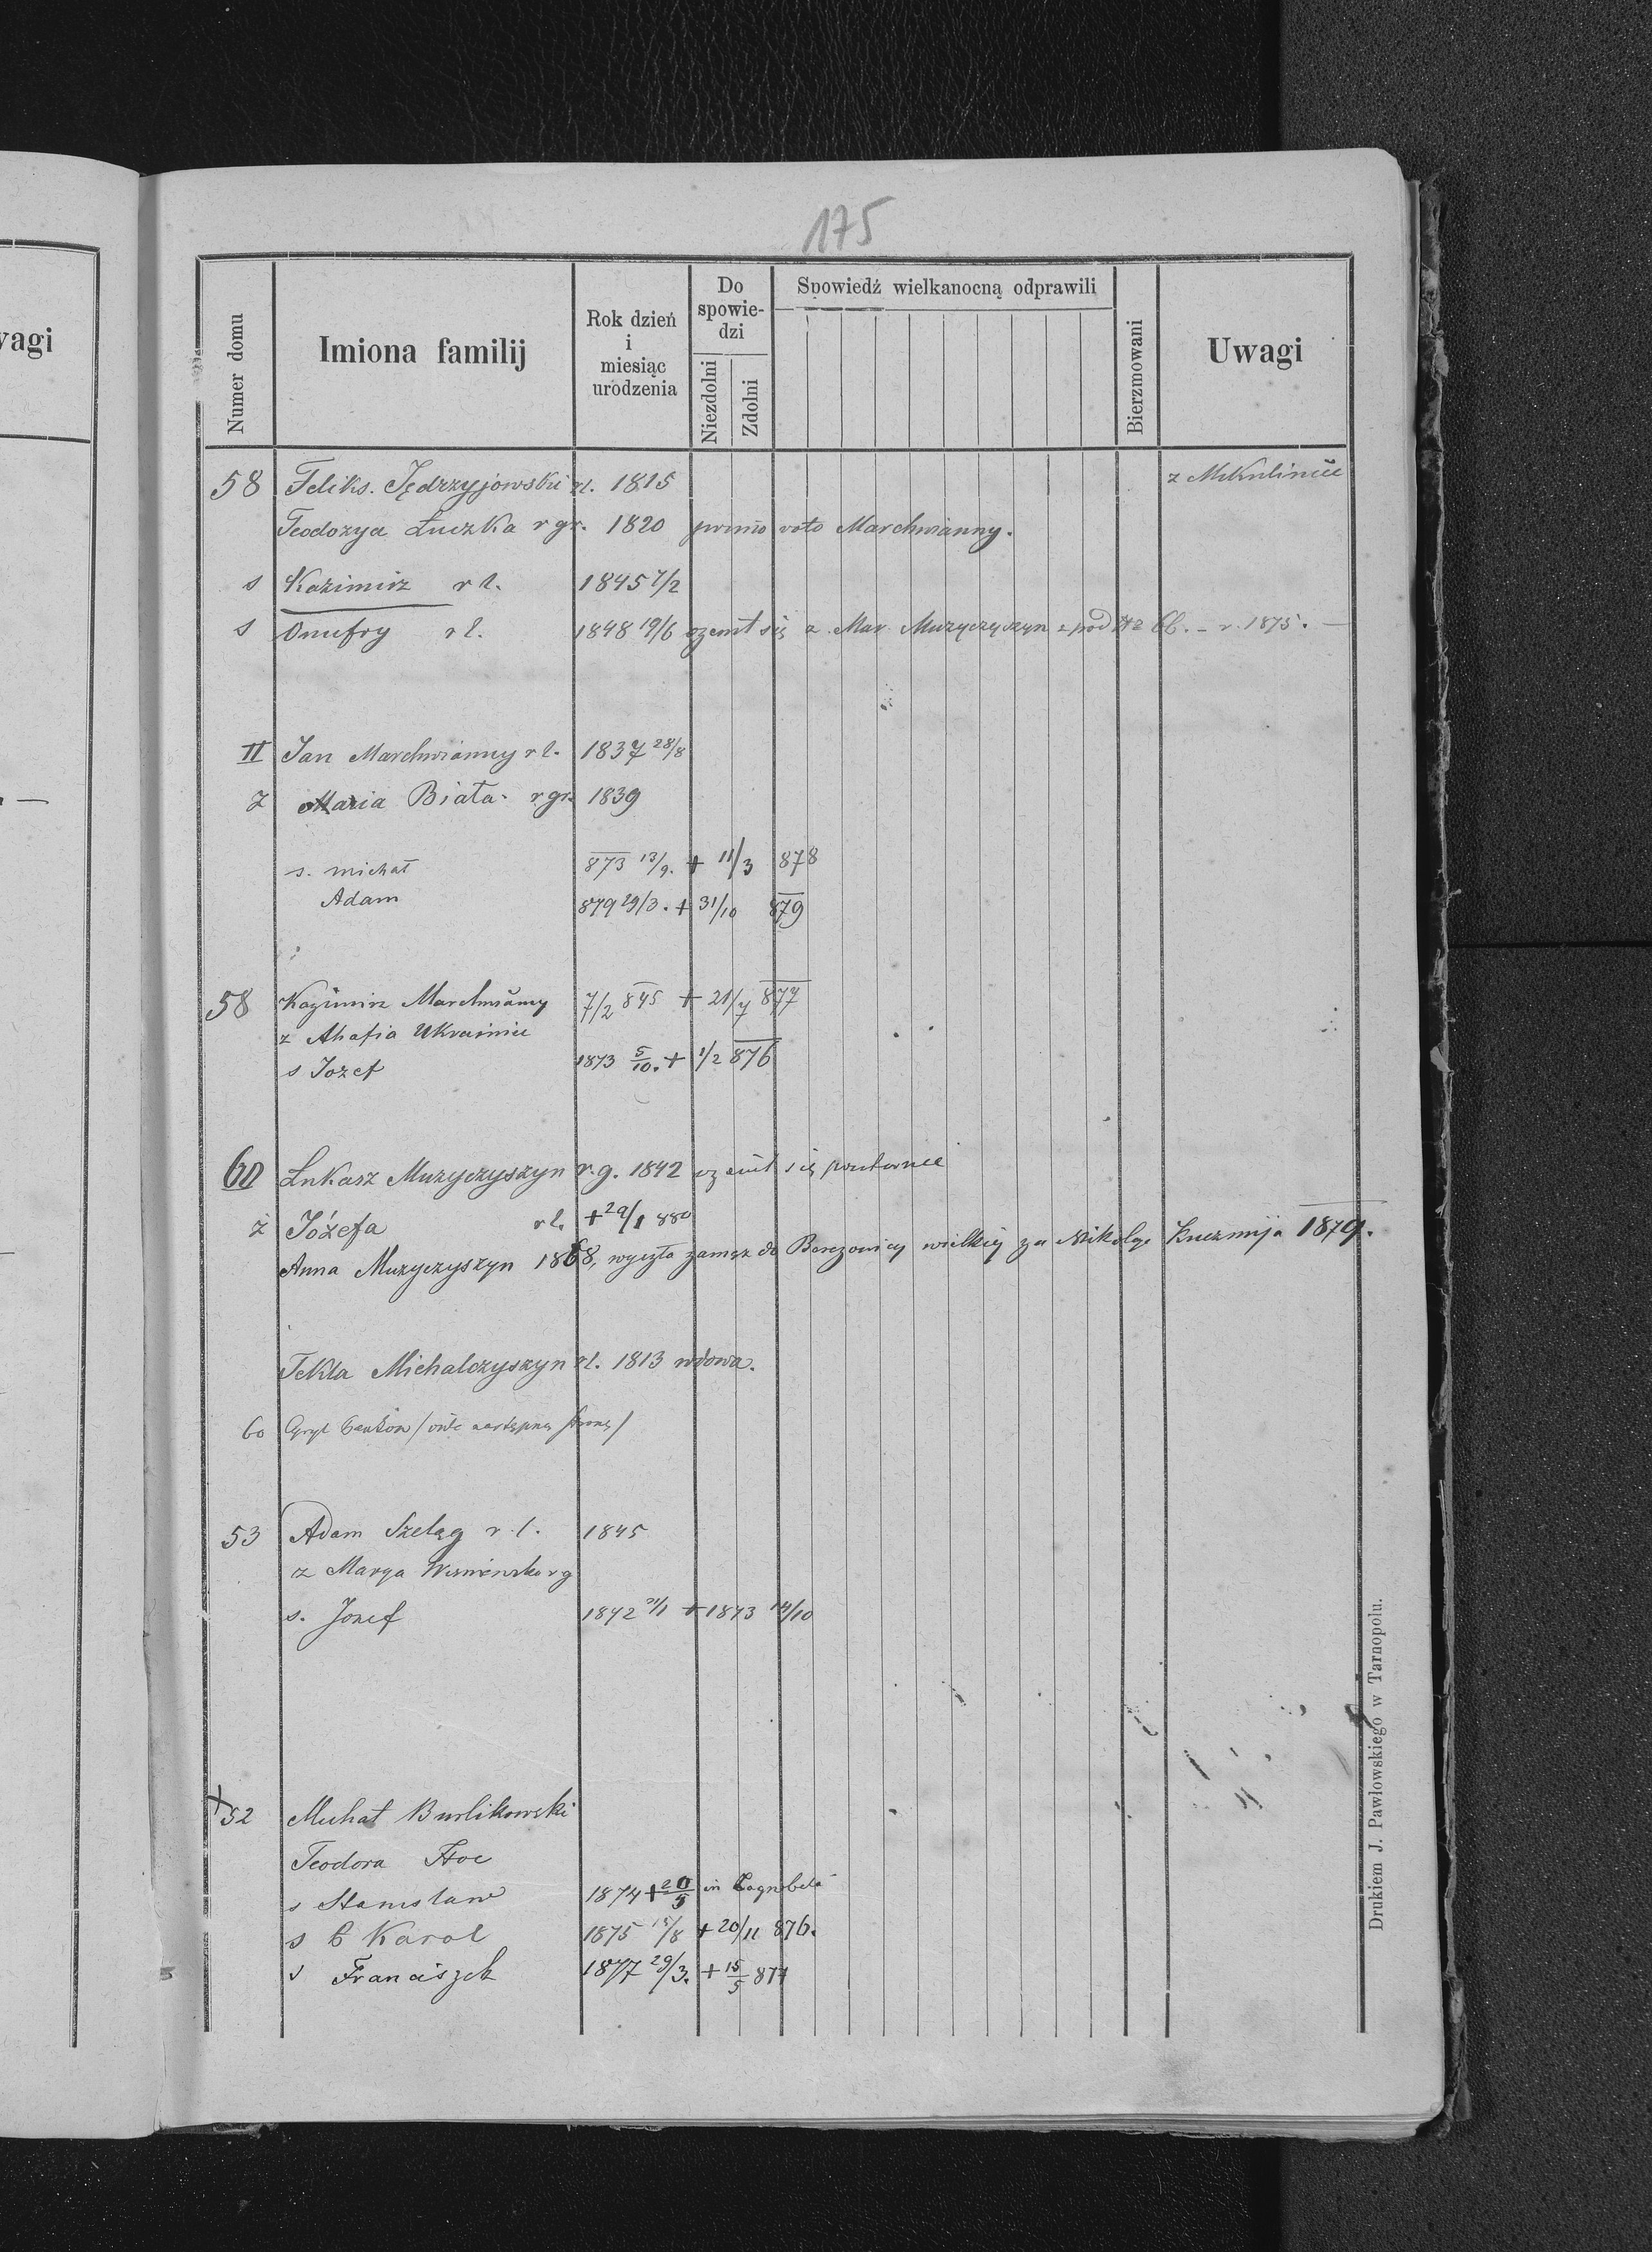 175
vagi
Numer domu
Imiona familij
Rok dzień i miesiąc urodzenia
Do spowie-dzi
Niezdolni
Zdolni
Spowiedź wielkanocną odprawili
Bierzmowani
Uwagi
58 Feliks. Jędrzyjowski rl. 1815 z Mikuliniec
Teodozya Łuczka r gr. 1820 primo voto Marchwianny.
s Kazimirz r l. 1845 7/2
s Onufry r l. 1848 19/6 ożenił się z Mar. Muzyczyszyn z pod Nr 66. – r. 1875. —
II Jan Marchwianny r l. 1837 28/8
ż Maria Biała r gr. 1839
s. Michał 873 13/9. + 11/3 878
Adam 879 29/3. + 31/10 879
58 Kazimirz Marchwiany 7/2 845 + 21/7 877
ż Ahafia Ukrainiec
s Jozef 1873 5/10. + 1/2 876
60 Łukasz Muzyczyszyn r. g. 1842 ożenił się powtornie
ż Józefa r l. + 29/1 880
Anna Muzyczyszyn 1868, wyszła zamąż do Berezowicy wielkiej za Mikołaja Kuczmija 1879.
Tekla Michalczyszyn r l. 1813 wdowa.
60 następną stronę/
53 Adam Szeląg r. l. 1845
ż Marya r g
s. Jozef + 1873 14/10
+ 52 Michał Burlikowski
Teodora Hoc
s Stanisław 1874 + 20/5 in Zagrobela
s Karol 1875 15/8 + 20/11 876.
s Franciszek 1877 29/3. + 15/5 877
Drukiem J. Pawłowskiego w Tarnopolu.